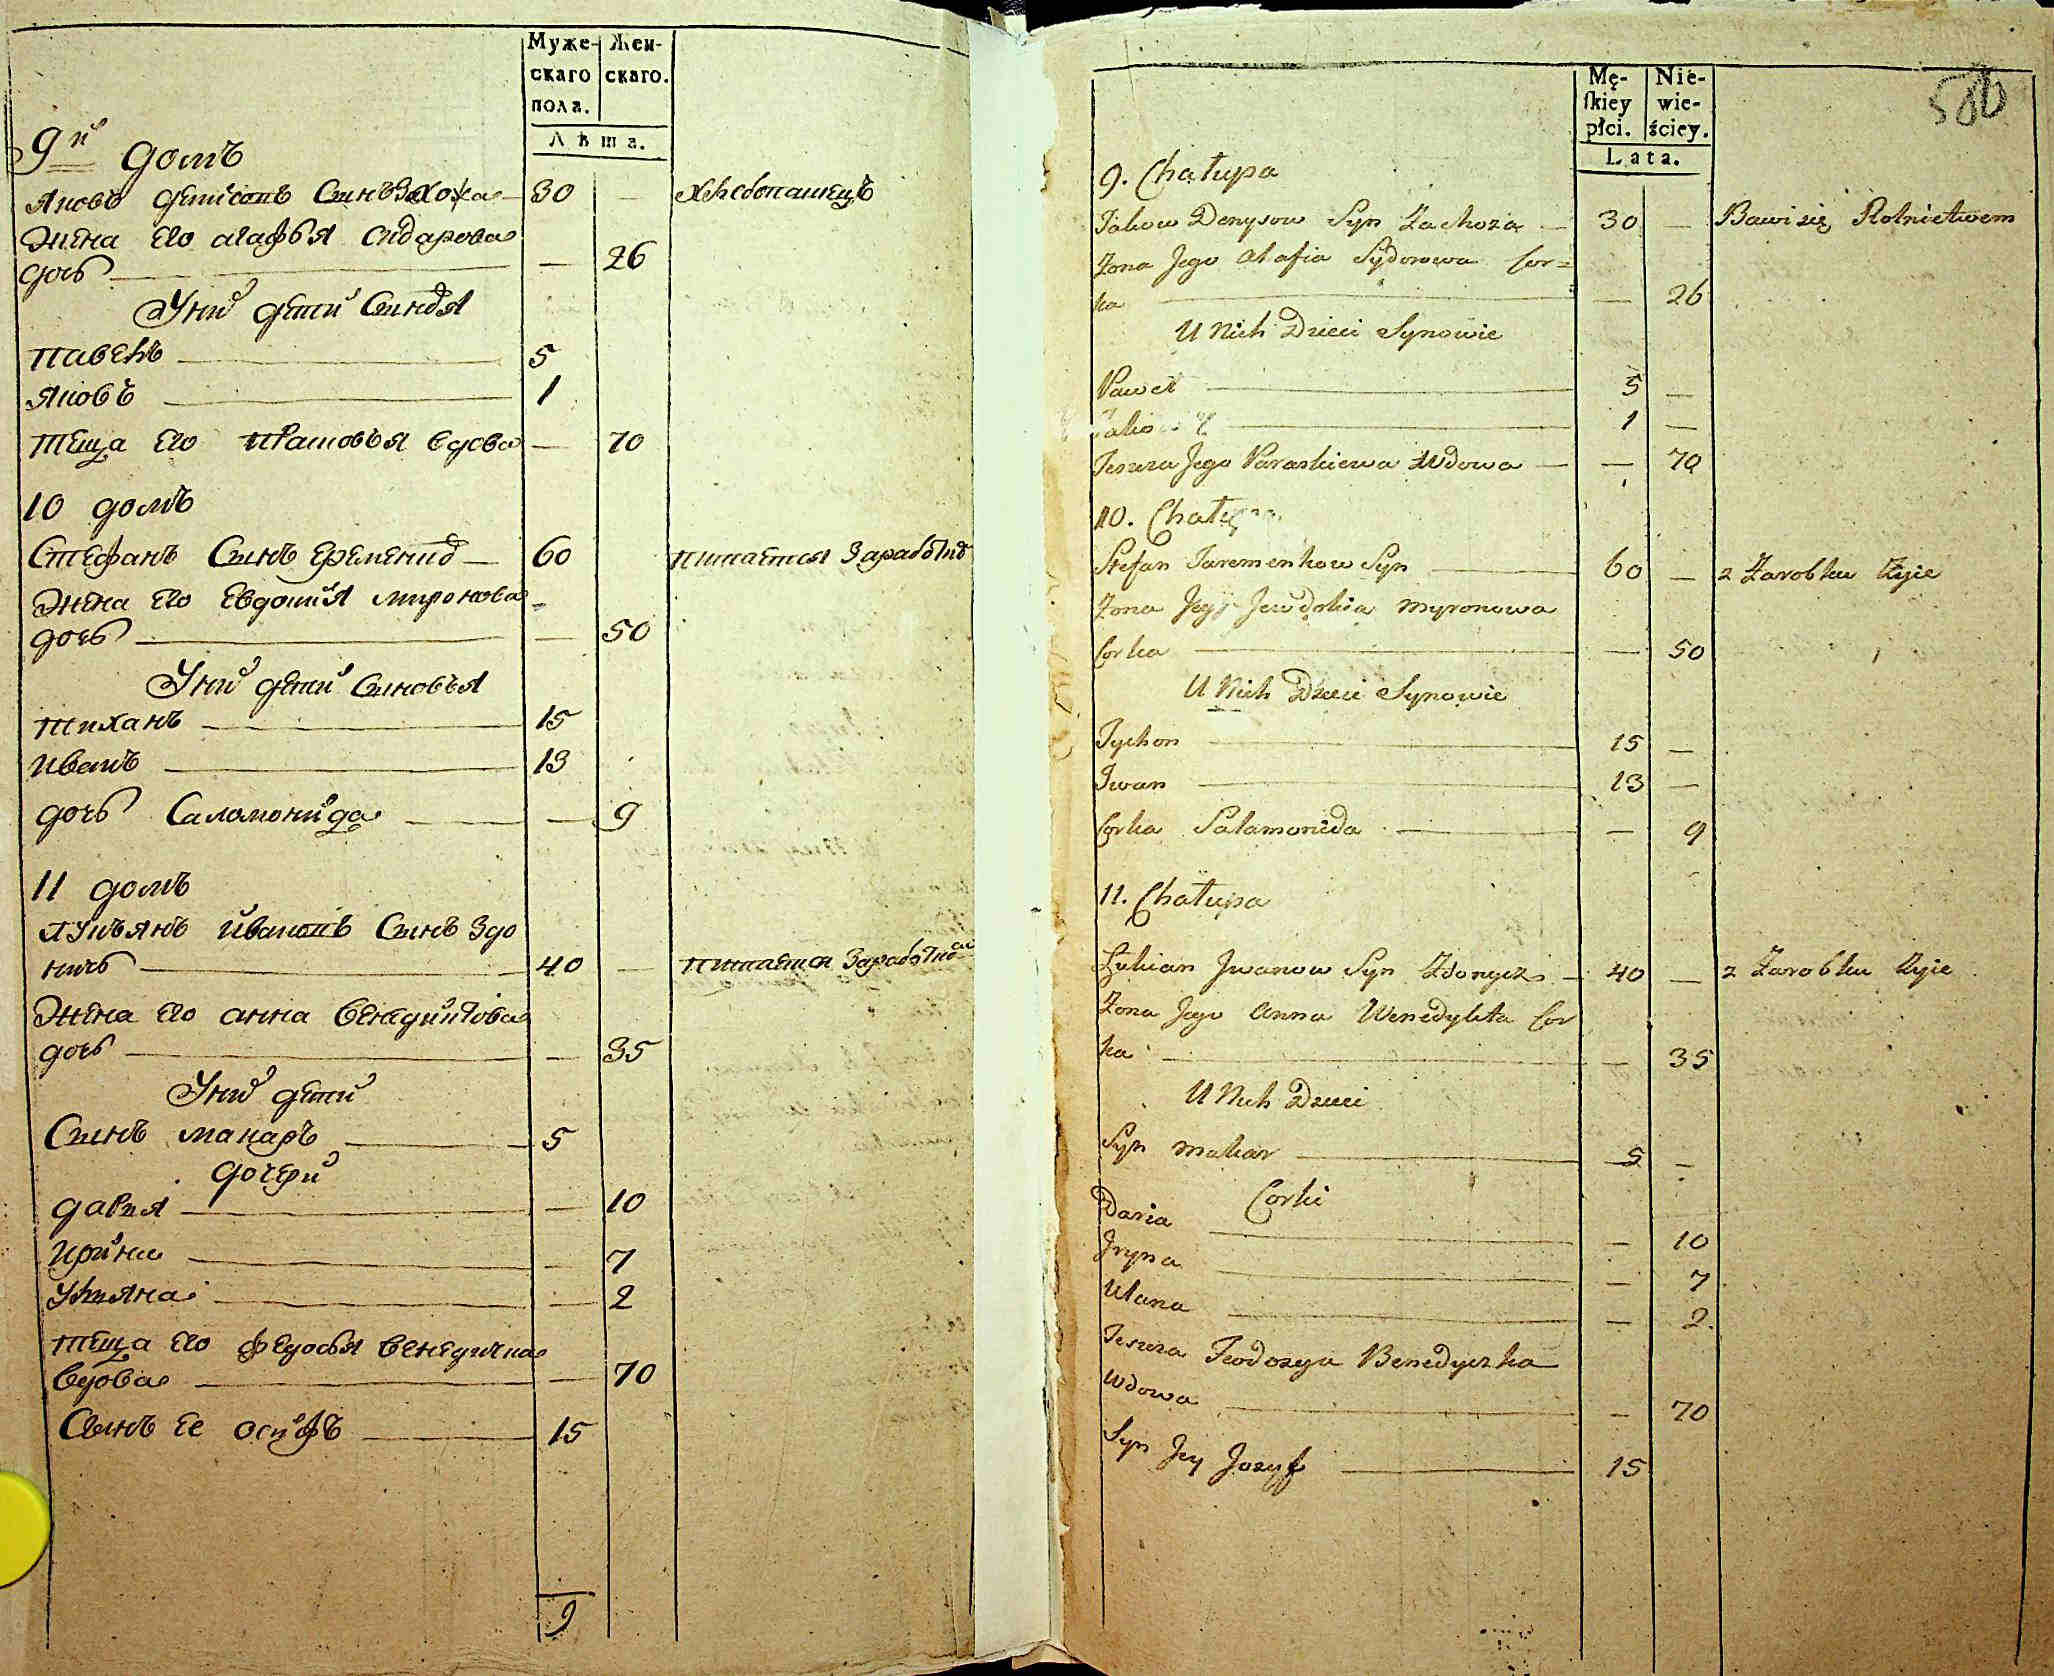 Муже- Жен-
скаго скаго.
пола.
Лѣта.
9й домъ
Яковъ денисовъ Синъ Захожа — 30 — хлѣбопашецъ
Жена его агафья сидарова
дочь — — 26
У них дети Синовя
Павелъ — 5
Яковъ — 1
теща его Прасковья вдова — 70
10 домъ
Стефанъ Синъ еременков — 60 питаетця Заработков
Жена его Евдокия миронова
дочь — — 50
У них дети Синовья
тиханъ — 15
иванъ — 13
дочь Саломонида — — 9
11 домъ
лукьянъ ивановъ Синъ Здо
ничъ — 40 — питается Заработков
Жена его анна Венедиктова
дочь — — 35
У них дети
Синъ макаръ — 5
дочери
дария — — 10
ирина — — 7
улияна — — 2
теща его федосья венедичка
вдова — — 70
Синъ ее осифъ — 15
9
Mę- Nie-
ſkiey wie-
płci. ściey.
Lata.
506
9. Chałupa
Jakow Denysow Syn Zachoża — 30 — Bawi się Rolnictwem
Żona Jego Ahafia Sydorowa Cor=
ka — — 26
U Nich Dzieci Synowie
Paweł — 5 —
Jakow — 1 —
Teszcza Jego Paraskiewa Wdowa — — 70
10. Chałupa
Stefan Jaremenkow Syn — 60 — z Zarobku Żyie
Żona Jego Jewdokia Myronowa
Corka — — 50
U Nich Dzieci Synowie
Tychon — 15 —
Iwan — 13 —
Corka Salamonida — — 9
11. Chałupa
Łukian Iwanow Syn Zdonycz — 40 — z Zarobku Żyie
Żona Jego Anna Wenedykta Cor
ka — — 35
U Nich Dzieci
Syn Makar — 5 —
Corki
Daria — — 10
Jryna — — 7
Ulana — — 2.
Teszcza Teodozya Benedyczka
Wdowa — — 70
Syn Jey Jozyf — 15